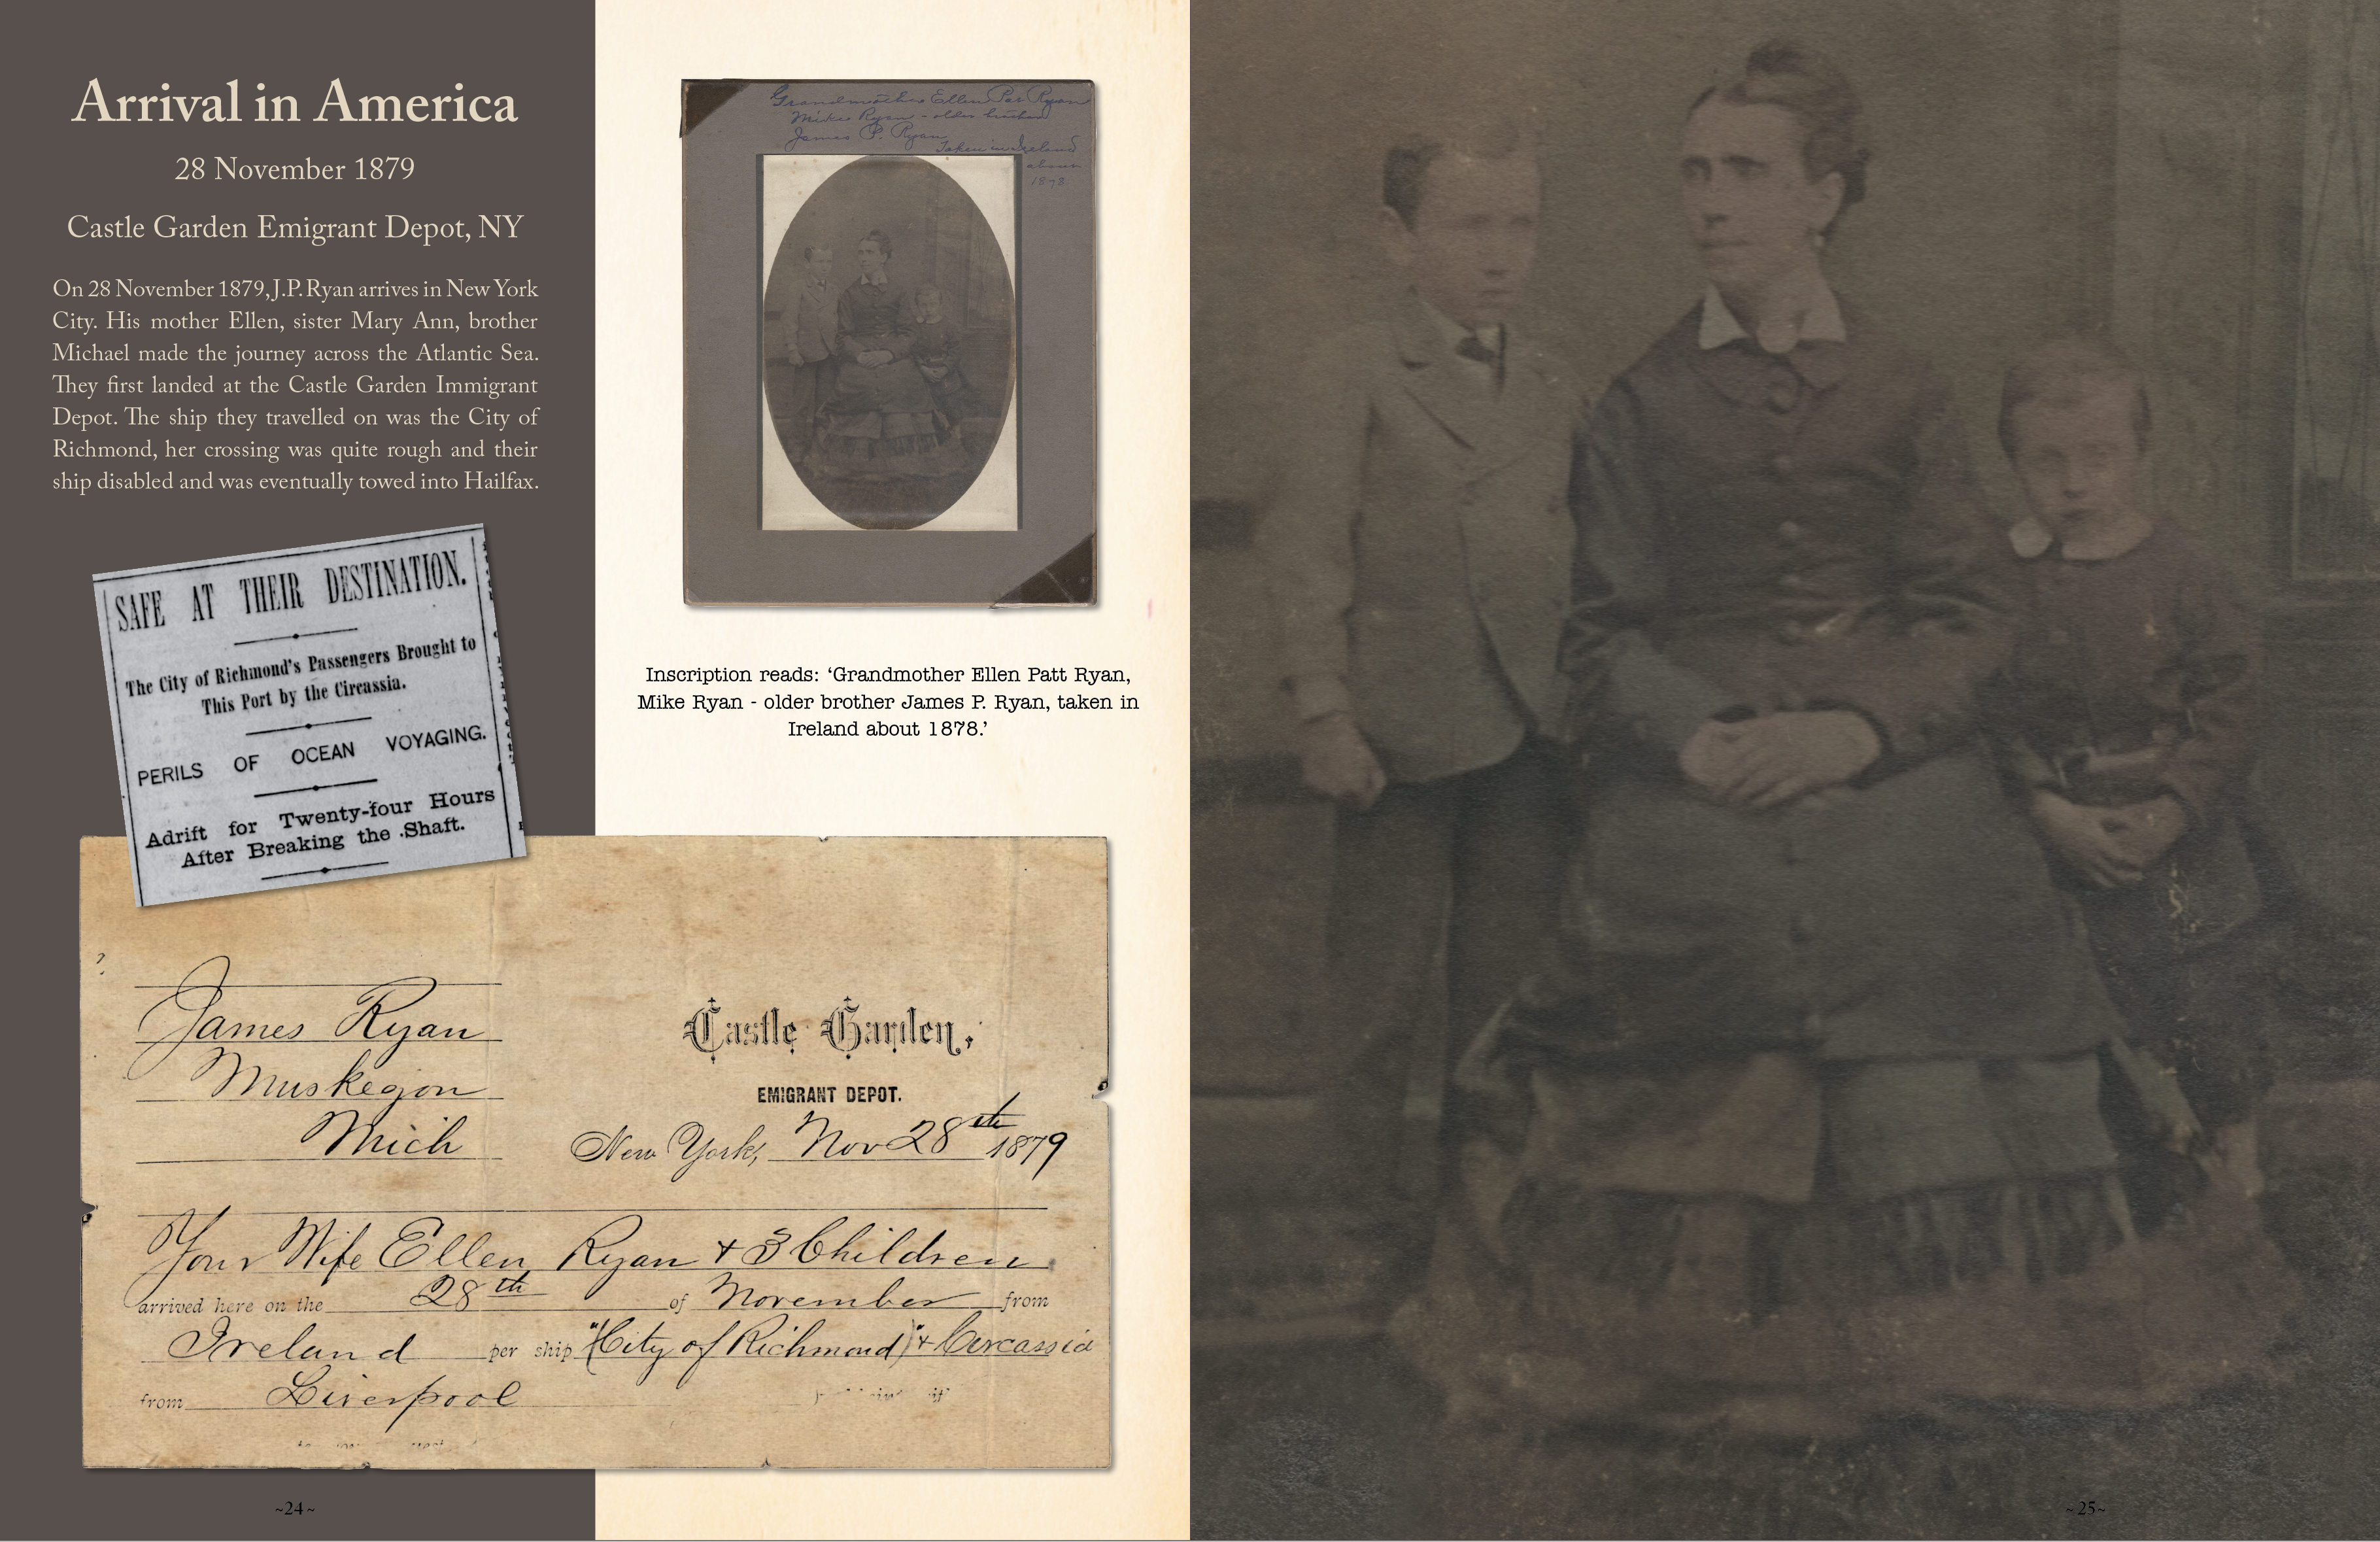 Arrival in America
28 November 1879
Castle Garden Emigrant Depot, NY
On 28 November 1879, J.P. Ryan arrives in New York
City. His mother Ellen, sister Mary Ann, brother
Michael made the journey across the Atlantic Sea.
They first landed at the Castle Garden Immigrant
Depot. The ship they travelled on was the City of
Richmond, her crossing was quite rough and their
ship disabled and was eventually towed into Hailfax.
SAFE AT THEIR DESTINATION.
The City of Richmond's Passengers Brought to
This Port by the Circassia.
PERILS OF OCEAN VOYAGING.
Adrift for Twenty-four Hours
After Breaking the Shaft.
Grandmother Ellen Pat Ryan
Mike Ryan - older brother
James P. Ryan
Taken in Ireland
about
1878
Inscription reads: ‘Grandmother Ellen Patt Ryan,
Mike Ryan - older brother James P. Ryan, taken in
Ireland about 1878.’
James Ryan
Muskegon
Mich
Castle Garden,
EMIGRANT DEPOT.
New York, Nov 28th 1879
Your Wife Ellen Ryan + 3 Children
arrived here on the 28th of November from
Ireland per ship "(City of Richmond)" + Circassia
from Liverpool
~24~
~25~